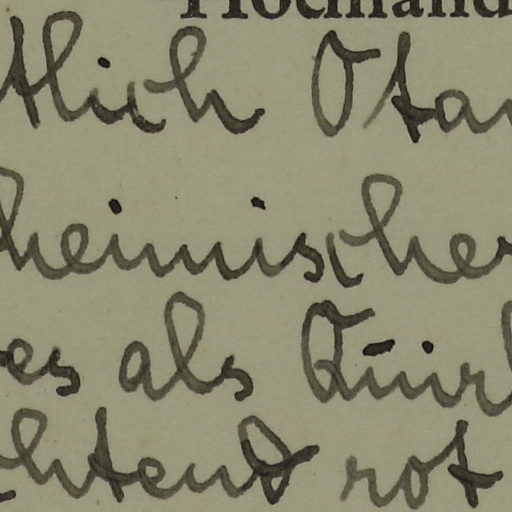 Hochland
tlich Ota
heimischer
es als Quirl
chtend rot